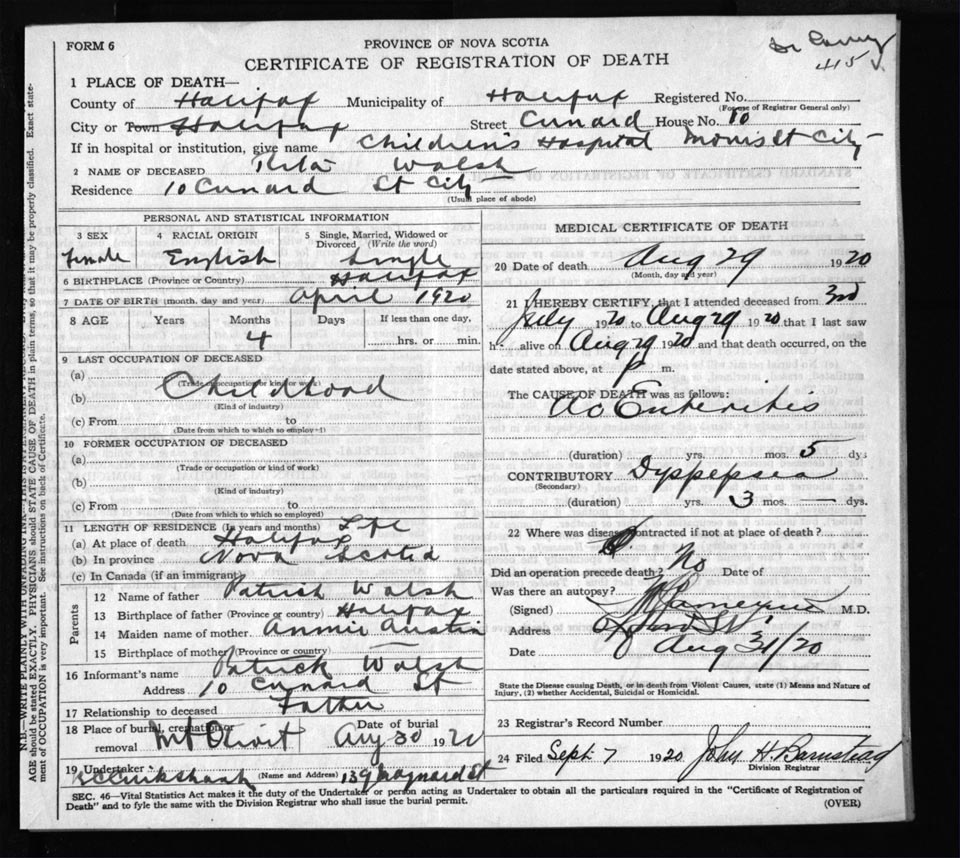 FORM 6
PROVINCE OF NOVA SCOTIA
CERTIFICATE OF REGISTRATION OF DEATH
415
1 PLACE OF DEATH—
County of Halifax Municipality of Halifax Registered No.
(For use of Registrar General only)
City or Town Halifax Street Cunard House No. 10
If in hospital or institution, give name Children's Hospital Morris St City
2 NAME OF DECEASED Rita Walsh
Residence 10 Cunard St City
(Usual place of abode)
PERSONAL AND STATISTICAL INFORMATION
3 SEX 4 RACIAL ORIGIN 5 Single, Married, Widowed or Divorced, (Write the word)
Female English Single
6 BIRTHPLACE (Province or Country) Halifax
7 DATE OF BIRTH (month, day and year) April 1920
8 AGE Years Months Days If less than one day,
4 hrs. or min.
9 LAST OCCUPATION OF DECEASED
(a)
(Trade, occupation or kind of work)
(b) Childhood
(Kind of industry)
(c) From to
(Date from which to which so employed)
10 FORMER OCCUPATION OF DECEASED
(a)
(Trade or occupation or kind of work)
(b)
(Kind of industry)
(c) From to
(Date from which to which so employed)
11 LENGTH OF RESIDENCE (In years and months) Life
(a) At place of death Halifax
(b) In province Nova Scotia
(c) In Canada (if an immigrant)
Parents
12 Name of father Patrick Walsh
13 Birthplace of father (Province or country) Halifax
14 Maiden name of mother Annie Austin
15 Birthplace of mother (Province or country)
16 Informant's name Patrick Walsh
Address 10 Cunard St
17 Relationship to deceased Father
18 Place of burial, cremation or removal Mt Olivet Date of burial Aug 30 1920
19 Undertaker Cruikshank (Name and Address) 139 Maynard St
MEDICAL CERTIFICATE OF DEATH
20 Date of death Aug 29 1920
(Month, day and year)
21 I HEREBY CERTIFY, that I attended deceased from 3rd
July 1920 to Aug 29 1920 that I last saw
h alive on Aug 29 1920 and that death occurred, on the
date stated above, at P m.
The CAUSE OF DEATH was as follows:
Ac Enteritis
(duration) yrs. mos. 5 dys
CONTRIBUTORY Dyspepsia
(Secondary)
(duration) yrs. 3 mos. — dys.
22 Where was disease contracted if not at place of death?
Did an operation precede death? No Date of
Was there an autopsy? No
(Signed) M.D.
Address
Date Aug 31/20
State the Disease causing Death, or in death from Violent Causes, state (1) Means and Nature of
Injury, (2) whether Accidental, Suicidal or Homicidal.
23 Registrar's Record Number
24 Filed Sept 7 1920 John H. Barnstead
Division Registrar
SEC. 46—Vital Statistics Act makes it the duty of the Undertaker or person acting as Undertaker to obtain all the particulars required in the "Certificate of Registration of
Death" and to fyle the same with the Division Registrar who shall issue the burial permit.
(OVER)